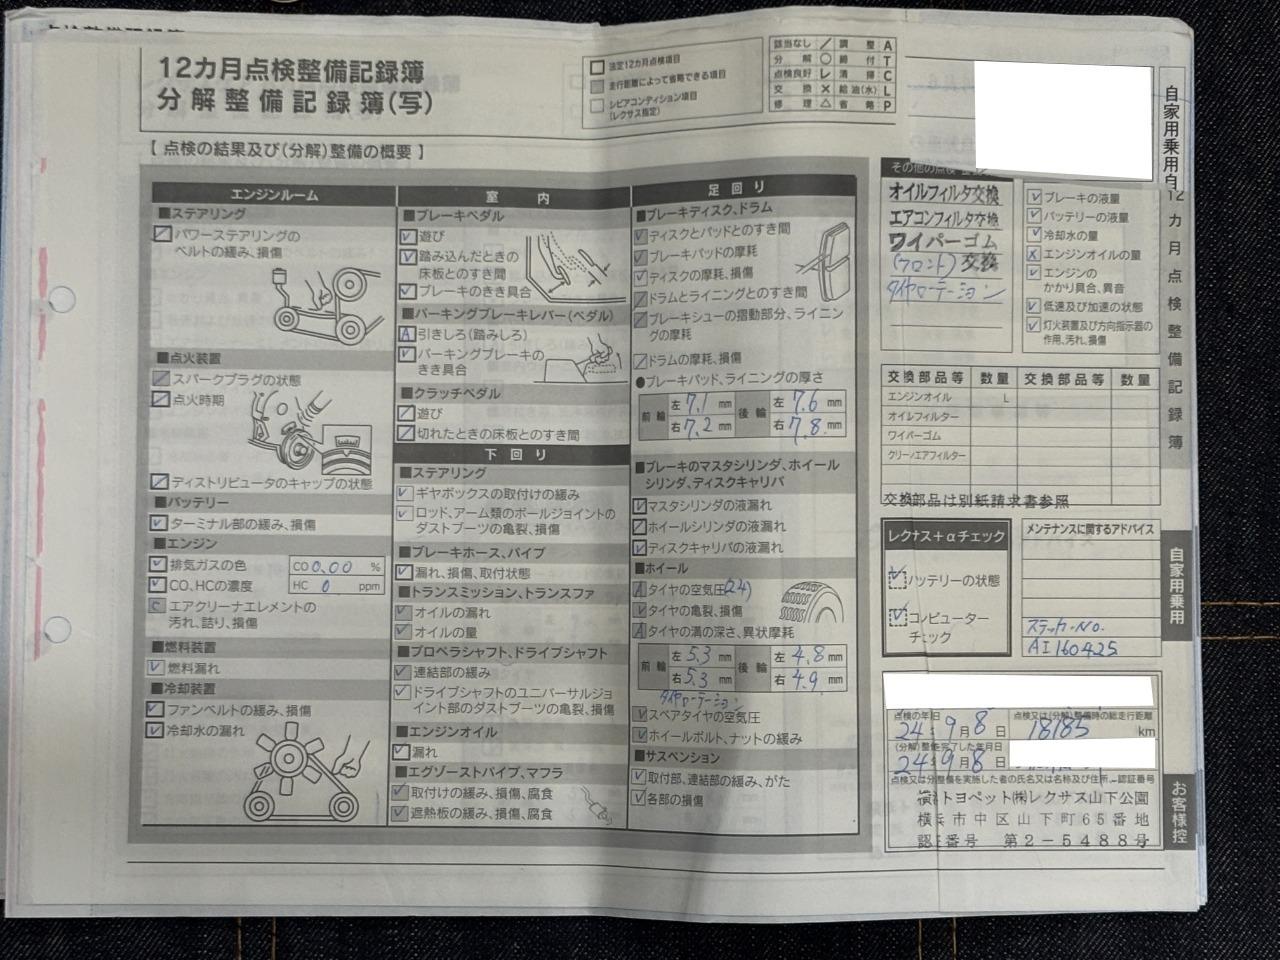 12カ月点検整備記録簿
分解整備記録簿(写)
法定12カ月点検項目
走行距離によって省略できる項目
シビアコンディション項目
(レクサス指定)
該当なし ／ 調整 A
分解 ○ 締付 T
点検良好 レ 清掃 C
交換 × 給油(水) L
修理 △ 省略 P
【 点検の結果及び(分解)整備の概要 】
エンジンルーム
■ステアリング
パワーステアリングの
ベルトの緩み、損傷
■点火装置
スパークプラグの状態
点火時期
ディストリビュータのキャップの状態
■バッテリー
ターミナル部の緩み、損傷
■エンジン
排気ガスの色
CO 0.00 %
CO、HCの濃度
HC 0 ppm
C エアクリーナエレメントの
汚れ、詰り、損傷
■燃料装置
燃料漏れ
■冷却装置
ファンベルトの緩み、損傷
冷却水の漏れ
室内
■ブレーキペダル
遊び
踏み込んだときの
床板とのすき間
ブレーキのきき具合
■パーキングブレーキレバー(ペダル)
A 引きしろ(踏みしろ)
パーキングブレーキの
きき具合
■クラッチペダル
遊び
切れたときの床板とのすき間
下回り
■ステアリング
ギヤボックスの取付けの緩み
ロッド、アーム類のボールジョイントの
ダストブーツの亀裂、損傷
■ブレーキホース、パイプ
漏れ、損傷、取付状態
■トランスミッション、トランスファ
オイルの漏れ
オイルの量
■プロペラシャフト、ドライブシャフト
連結部の緩み
ドライブシャフトのユニバーサルジョ
イント部のダストブーツの亀裂、損傷
■エンジンオイル
漏れ
■エグゾーストパイプ、マフラ
取付けの緩み、損傷、腐食
遮熱板の緩み、損傷、腐食
足回り
■ブレーキディスク、ドラム
ディスクとパッドとのすき間
ブレーキパッドの摩耗
ディスクの摩耗、損傷
ドラムとライニングとのすき間
ブレーキシューの摺動部分、ライニン
グの摩耗
ドラムの摩耗、損傷
●ブレーキパッド、ライニングの厚さ
前輪 左 7.1 mm 後輪 左 7.6 mm
右 7.2 mm 右 7.8 mm
■ブレーキのマスタシリンダ、ホイール
シリンダ、ディスクキャリパ
マスタシリンダの液漏れ
ホイールシリンダの液漏れ
ディスクキャリパの液漏れ
■ホイール
A タイヤの空気圧(24)
タイヤの亀裂、損傷
A タイヤの溝の深さ、異状摩耗
前輪 左 5.3 mm 後輪 左 4.8 mm
右 5.3 mm 右 4.9 mm
タイヤローテーション
スペアタイヤの空気圧
ホイールボルト、ナットの緩み
■サスペンション
取付部、連結部の緩み、がた
各部の損傷
その他の点検
オイルフィルタ交換
エアコンフィルタ交換
ワイパーゴム
(フロント)交換
タイヤローテーション
ブレーキの液量
バッテリーの液量
冷却水の量
X エンジンオイルの量
エンジンの
かかり具合、異音
低速及び加速の状態
灯火装置及び方向指示器の
作用、汚れ、損傷
交換部品等 数量 交換部品等 数量
エンジンオイル L
オイルフィルター
ワイパーゴム
クリーンエアフィルター
交換部品は別紙請求書参照
レクサス+αチェック
バッテリーの状態
コンピューター
チェック
メンテナンスに関するアドバイス
ステッカーNo.
AI160425
点検の年月日
24年 9月 8日
点検又は(分解)整備時の総走行距離
18185 km
(分解)整備完了した年月日
24年 9月 8日
点検又は分解整備を実施した者の氏名又は名称及び住所 認証番号
横浜トヨペット㈱レクサス山下公園
横浜市中区山下町65番地
認証番号 第2-5488号
自家用乗用自
12カ月点検整備記録簿
自家用乗用
お客様控